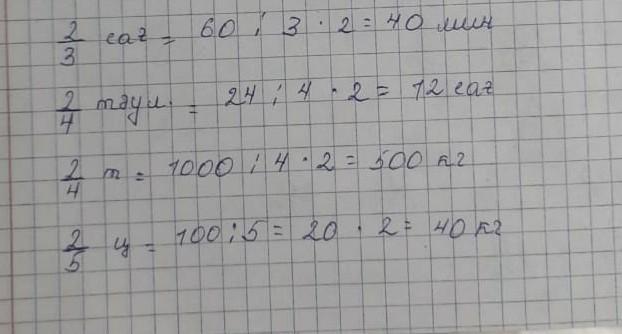 2/3 сағ = 60 : 3 · 2 = 40 мин
2/4 тәул. = 24 : 4 · 2 = 12 сағ
2/4 т = 1000 : 4 · 2 = 500 кг
2/5 ц = 100 : 5 = 20 · 2 = 40 кг